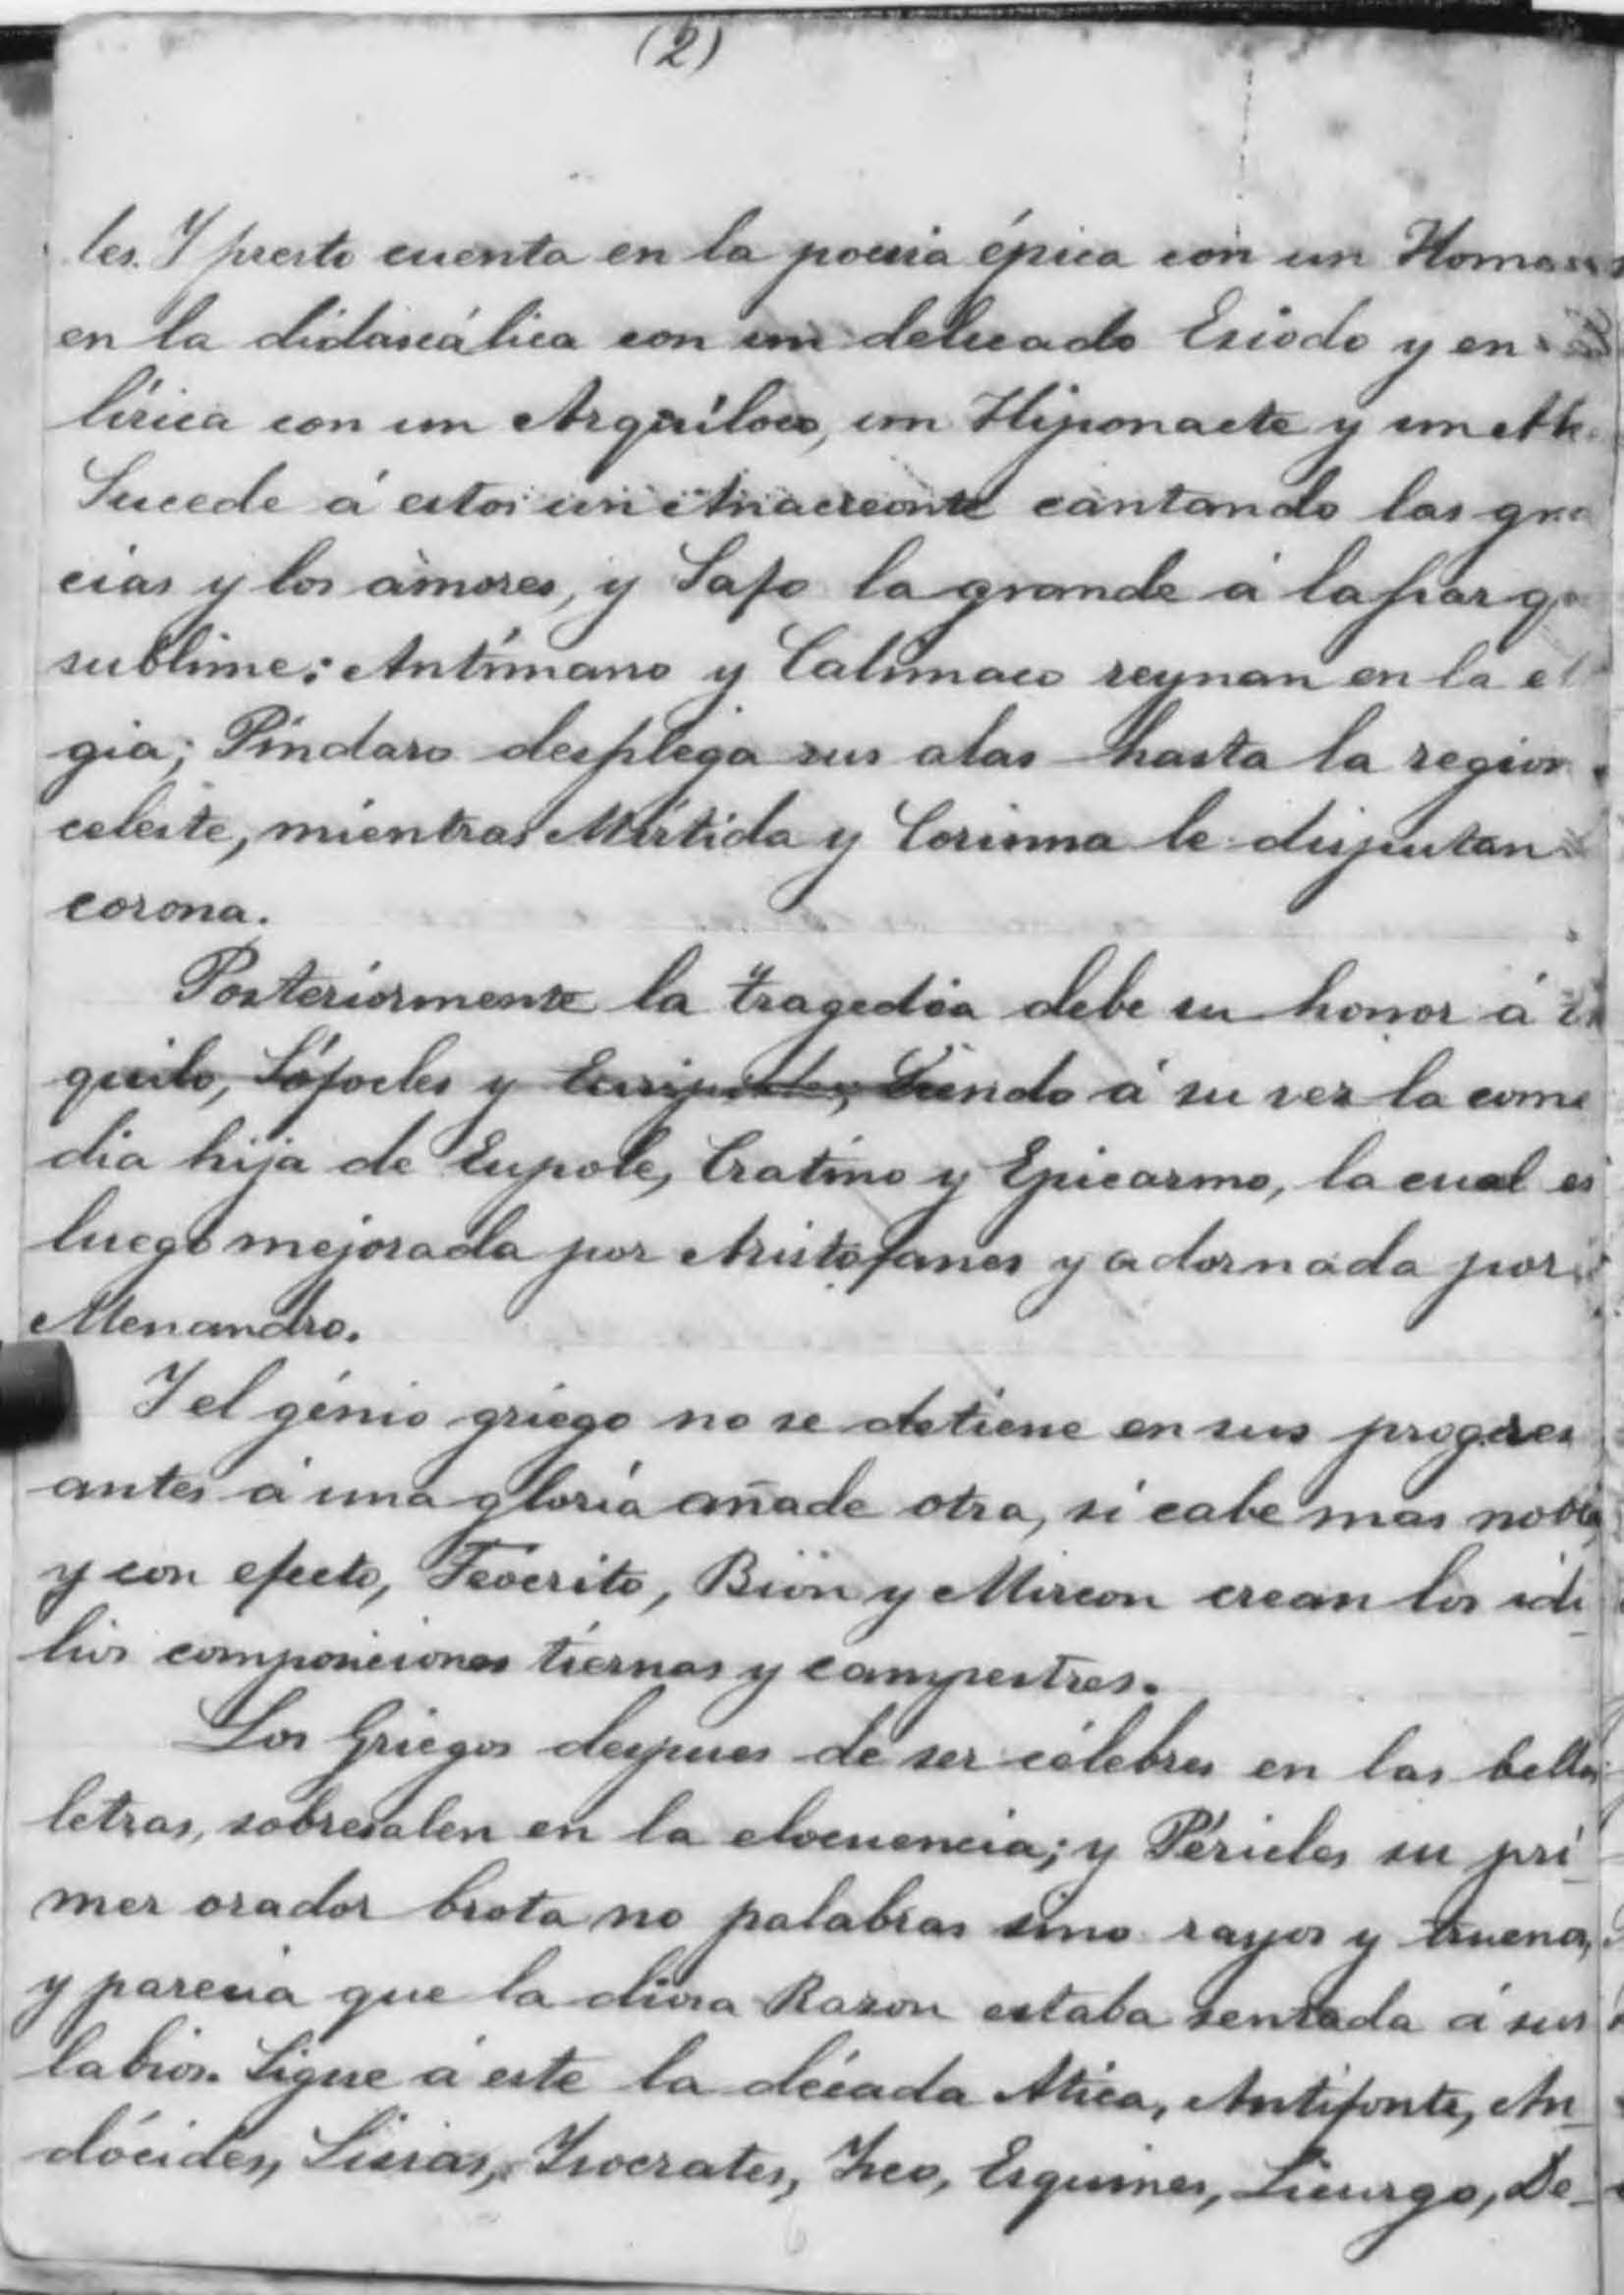 (2)
les. Y presto cuenta en la poesia épica con un
en la didascálica con un delicado Esiodo y en
lírica con un Arquíloco, un Hiponacte y un
Sucede á estos un Anacreonte cantando las gra
cias y los amores, y Safo la grande á la par
sublime: Antímano y Calimaco reynan en la
gia; Píndaro desplega sus alas hasta la region
celeste, mientras Mírtida y Corinna le disputan
corona.
Posteriormente la tragedia debe su honor á
quilo, Sófocles y Euripides, Siendo á su vez la come
dia hija de Eupole, Cratino y Epicarmo, la cual es
luego mejorada por Aristofanes y adornada por
Menandro.
Y el génio griego no se detiene en sus
antes á una gloria añade otra, si cabe mas noble,
y con efecto, Teócrito, Bion y Mircon crean los idi
lios composiciones tiernas y campestres.
Los Griegos despues de ser célebres en las bellas
letras, sobresalen en la elocuencia; y Péricles su pri
mer orador brota no palabras sino rayos y truenos,
y parecia que la diosa Razon estaba sentada á sus
labios. Sigue á este la década Atica, Antifonte, An
dócides, Lisias, Isocrates, Iseo, Esquines, Licurgo, De